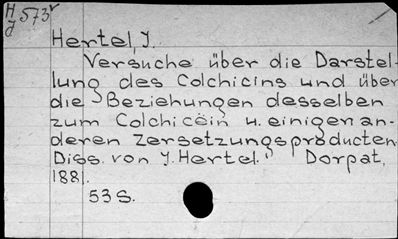 H 573v
d
Hertel, J.
Versuche über die Darstel-
lung des Colchicins und über
die Beziehungen desselben
zum Colchicëin u. einigen an-
deren Zersetzungsproducten.
Diss. von J. Hertel. Dorpat,
1881.
53 S.